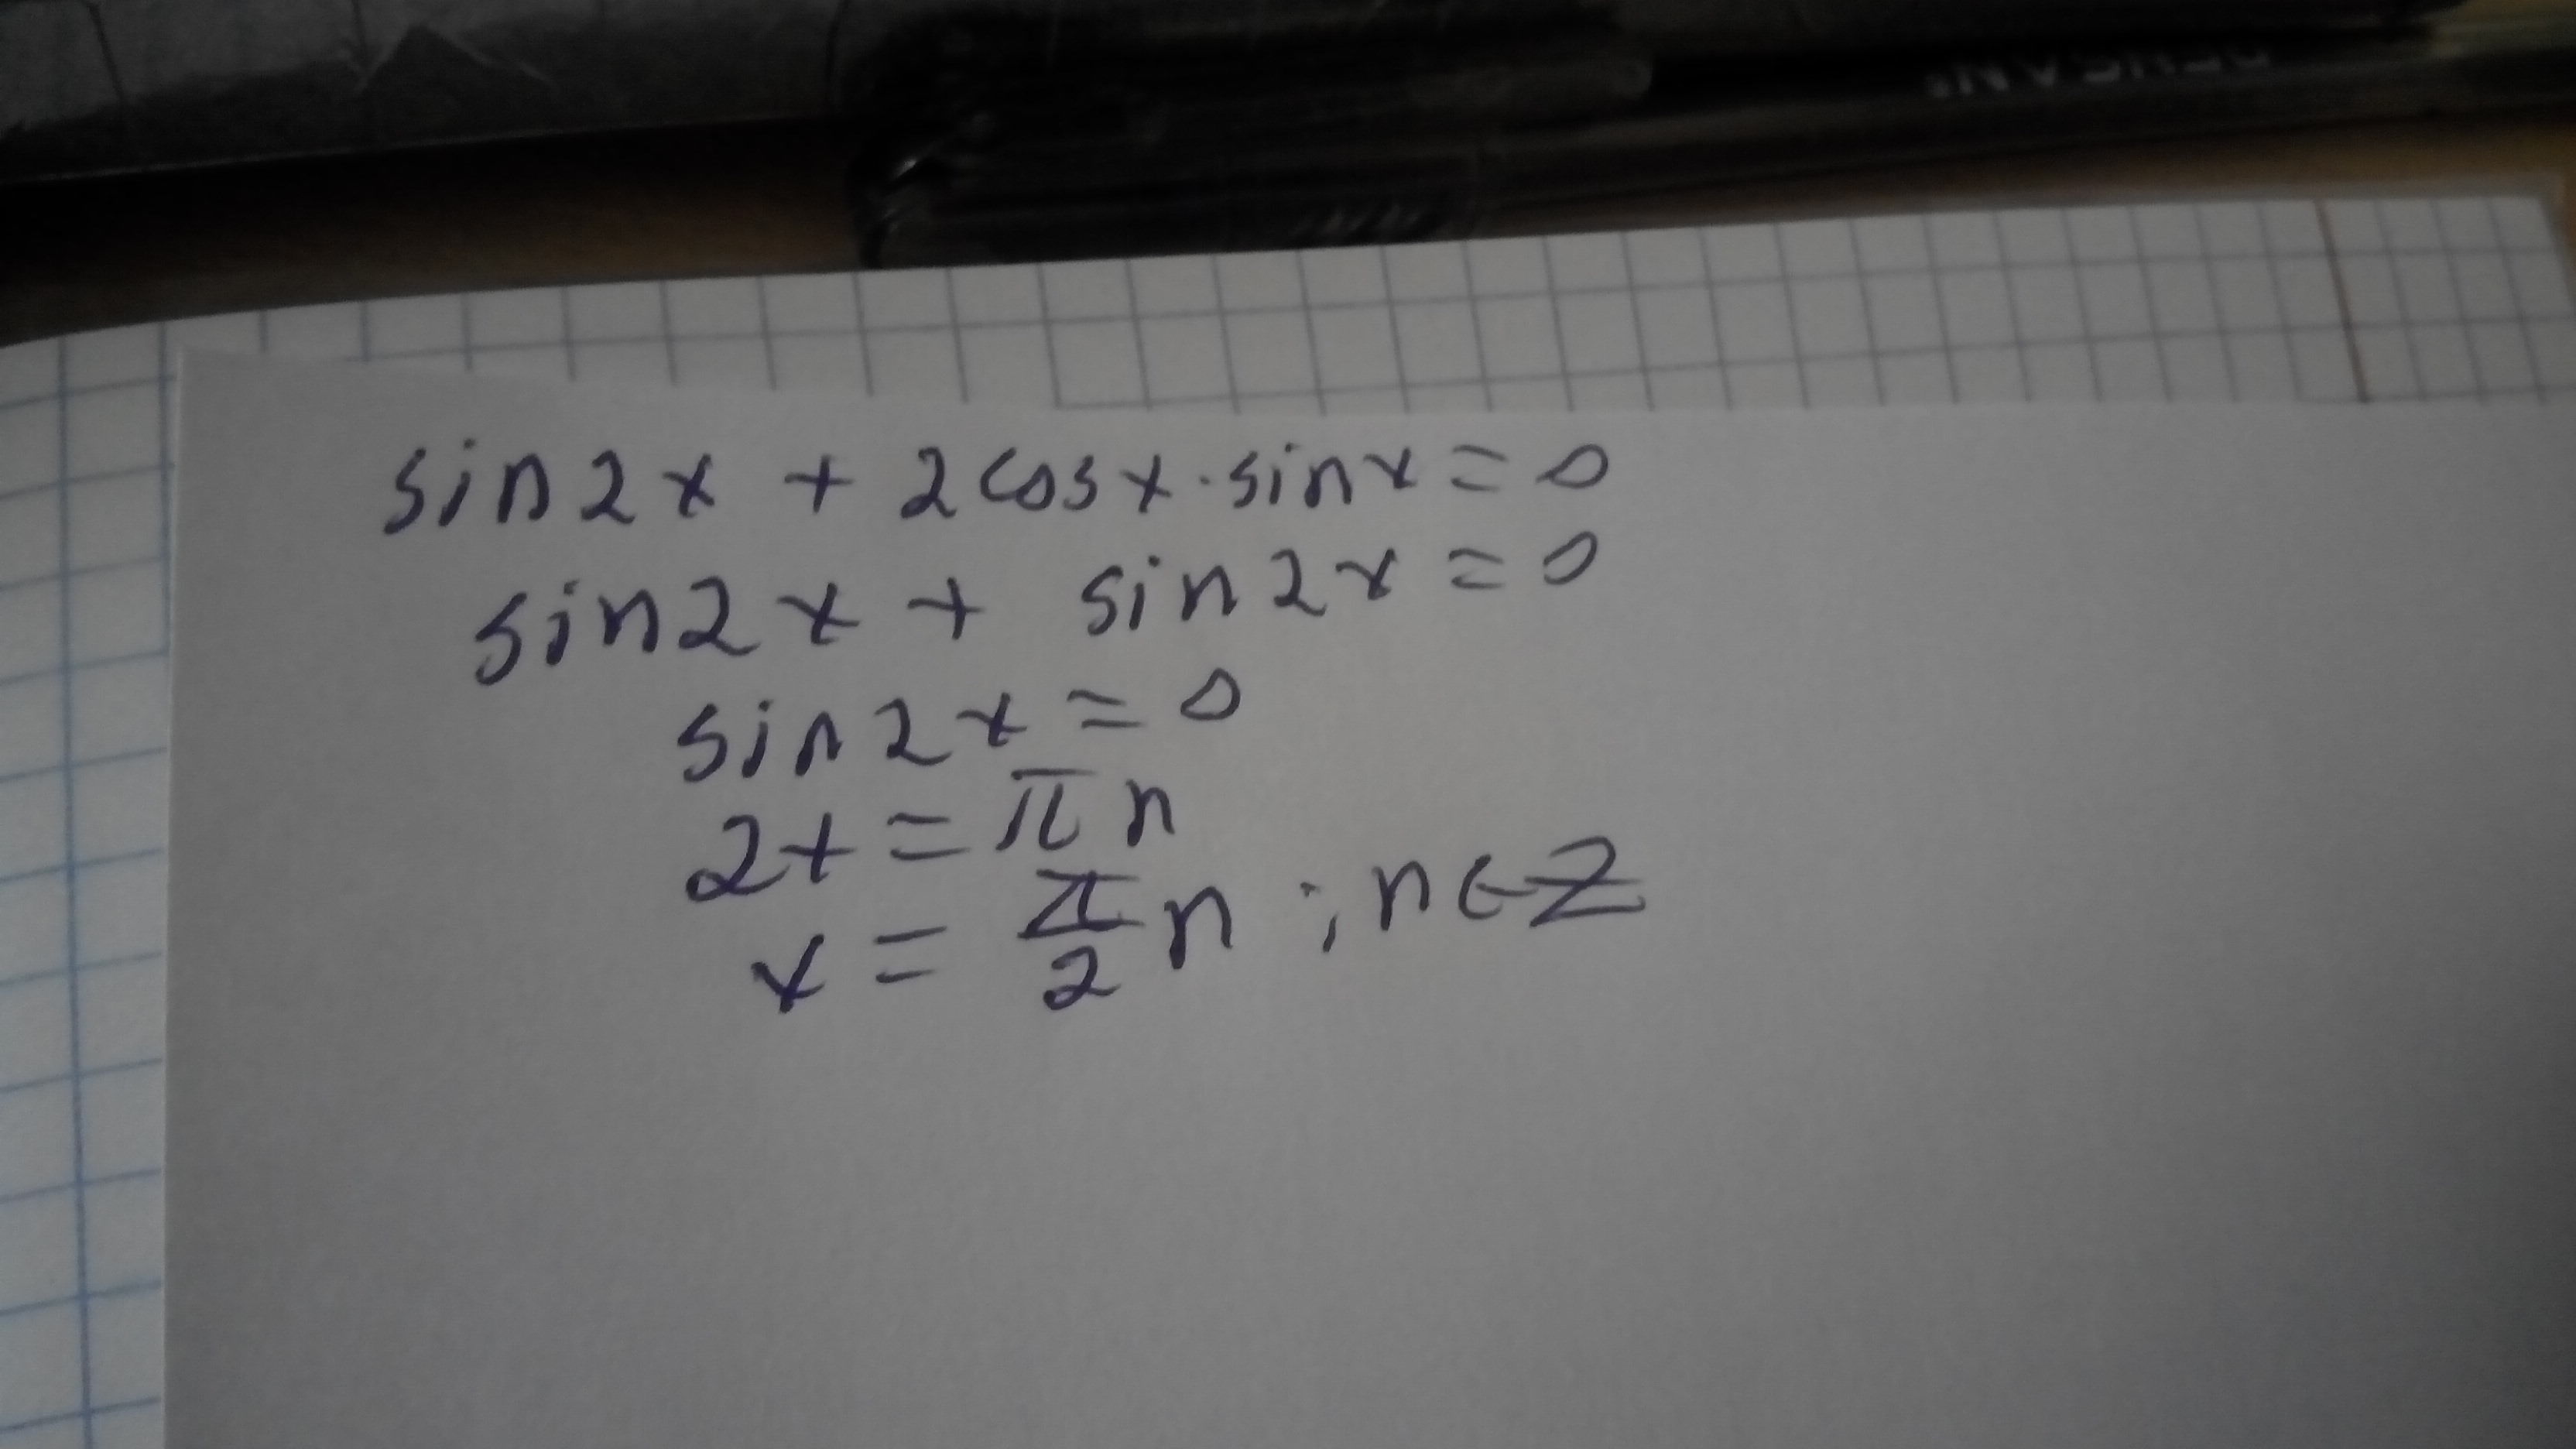 sin2x + 2cosx·sinx=0
sin2x + sin2x=0
sin2x=0
2x=πn
x = π/2 n ; n∈Z